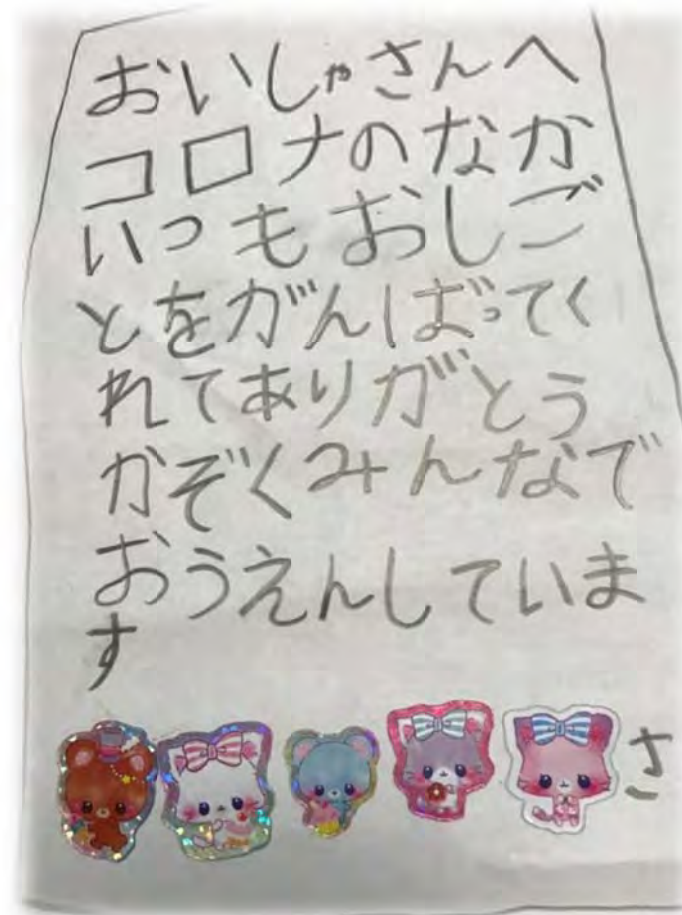 おいしゃさんへ
コロナのなか
いつもおしご
とをがんばってく
れてありがとう
かぞくみんなで
おうえんしていま
す
さ